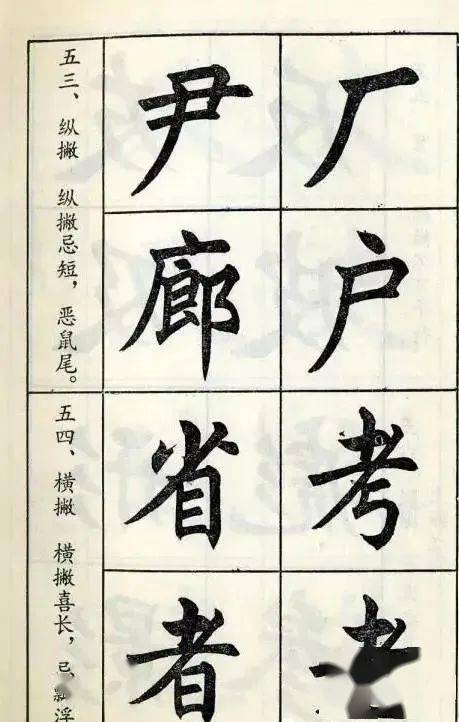 五三、纵撇 纵撇忌短，恶鼠尾。
尹厂
廊户
五四、横撇 横撇喜长，
省考
者